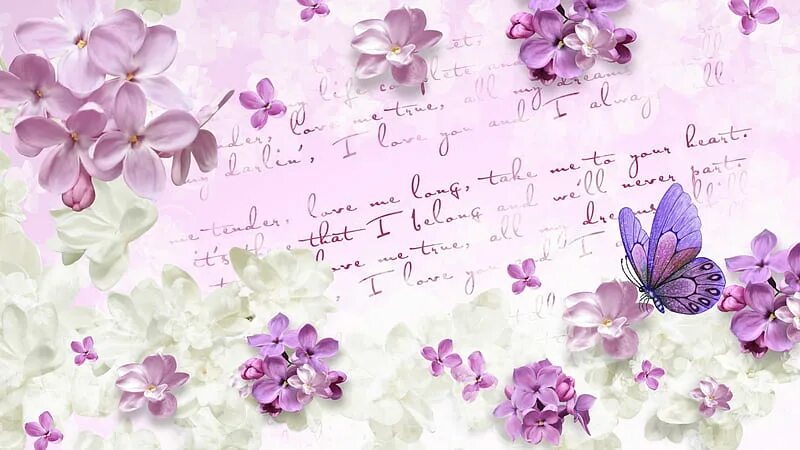 my life complete and
love me true, all my dreams
my darlin', I love you and I alway
love me long, take me to your heart.
it's there that I belong and we'll never part.
love me true, all my dreams
I love you and I